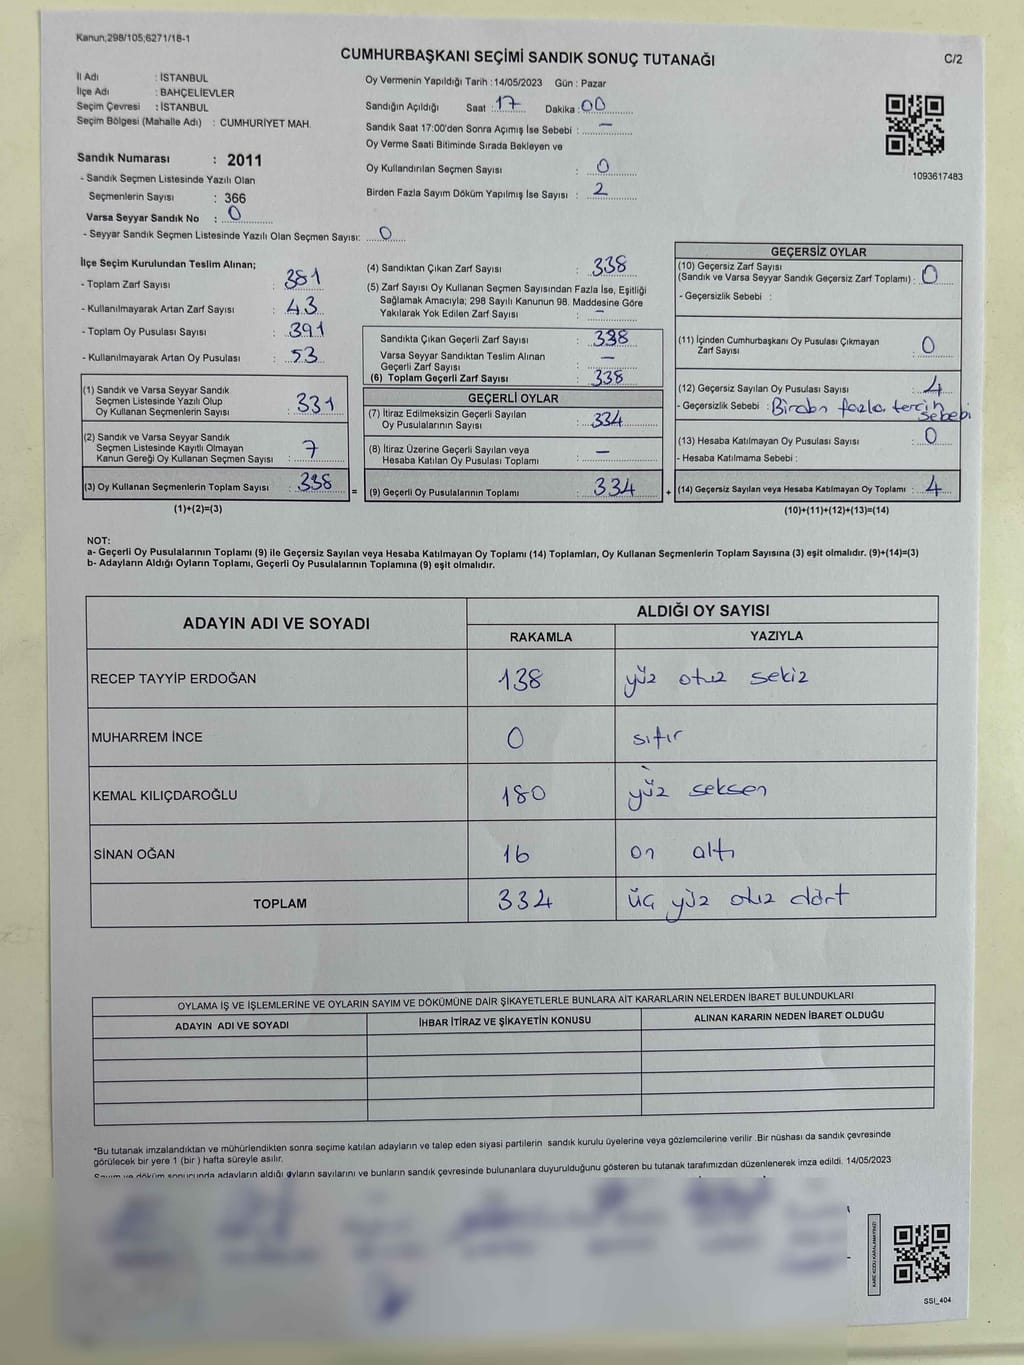 Kanun,298/105;6271/18-1
CUMHURBAŞKANI SEÇİMİ SANDIK SONUÇ TUTANAĞI
C/2
İl Adı : İSTANBUL
İlçe Adı : BAHÇELİEVLER
Seçim Çevresi : İSTANBUL
Seçim Bölgesi (Mahalle Adı) : CUMHURİYET MAH.
Sandık Numarası : 2011
- Sandık Seçmen Listesinde Yazılı Olan
Seçmenlerin Sayısı : 366
Varsa Seyyar Sandık No : 0
- Seyyar Sandık Seçmen Listesinde Yazılı Olan Seçmen Sayısı: 0
Oy Vermenin Yapıldığı Tarih : 14/05/2023 Gün : Pazar
Sandığın Açıldığı Saat : 17 Dakika : 00
Sandık Saat 17:00'den Sonra Açımış İse Sebebi : —
Oy Verme Saati Bitiminde Sırada Bekleyen ve
Oy Kullandırılan Seçmen Sayısı : 0
Birden Fazla Sayım Döküm Yapılmış İse Sayısı : 2
1093617483
İlçe Seçim Kurulundan Teslim Alınan;
- Toplam Zarf Sayısı : 381
- Kullanılmayarak Artan Zarf Sayısı : 43
- Toplam Oy Pusulası Sayısı : 391
- Kullanılmayarak Artan Oy Pusulası : 53
(1) Sandık ve Varsa Seyyar Sandık
Seçmen Listesinde Yazılı Olup
Oy Kullanan Seçmenlerin Sayısı : 331
(2) Sandık ve Varsa Seyyar Sandık
Seçmen Listesinde Kayıtlı Olmayan
Kanun Gereği Oy Kullanan Seçmen Sayısı : 7
(3) Oy Kullanan Seçmenlerin Toplam Sayısı : 338
(1)+(2)=(3)
(4) Sandıktan Çıkan Zarf Sayısı : 338
(5) Zarf Sayısı Oy Kullanan Seçmen Sayısından Fazla İse, Eşitliği
Sağlamak Amacıyla; 298 Sayılı Kanunun 98. Maddesine Göre
Yakılarak Yok Edilen Zarf Sayısı : —
Sandıkta Çıkan Geçerli Zarf Sayısı : 338
Varsa Seyyar Sandıktan Teslim Alınan
Geçerli Zarf Sayısı : —
(6) Toplam Geçerli Zarf Sayısı : 338
GEÇERLİ OYLAR
(7) İtiraz Edilmeksizin Geçerli Sayılan
Oy Pusulalarının Sayısı : 334
(8) İtiraz Üzerine Geçerli Sayılan veya
Hesaba Katılan Oy Pusulası Toplamı : —
= (9) Geçerli Oy Pusulalarının Toplamı : 334 +
GEÇERSİZ OYLAR
(10) Geçersiz Zarf Sayısı
(Sandık ve Varsa Seyyar Sandık Geçersiz Zarf Toplamı) : 0
- Geçersizlik Sebebi :
(11) İçinden Cumhurbaşkanı Oy Pusulası Çıkmayan
Zarf Sayısı : 0
(12) Geçersiz Sayılan Oy Pusulası Sayısı : 4
- Geçersizlik Sebebi : fazla tercih
sebebi
(13) Hesaba Katılmayan Oy Pusulası Sayısı : 0
- Hesaba Katılmama Sebebi :
(14) Geçersiz Sayılan veya Hesaba Katılmayan Oy Toplamı : 4
(10)+(11)+(12)+(13)=(14)
NOT:
a- Geçerli Oy Pusulalarının Toplamı (9) ile Geçersiz Sayılan veya Hesaba Katılmayan Oy Toplamı (14) Toplamları, Oy Kullanan Seçmenlerin Toplam Sayısına (3) eşit olmalıdır. (9)+(14)=(3)
b- Adayların Aldığı Oyların Toplamı, Geçerli Oy Pusulalarının Toplamına (9) eşit olmalıdır.
ADAYIN ADI VE SOYADI
ALDIĞI OY SAYISI
RAKAMLA YAZIYLA
RECEP TAYYİP ERDOĞAN 138 yüz otuz sekiz
MUHARREM İNCE 0 sıfır
KEMAL KILIÇDAROĞLU 180 yüz seksen
SİNAN OĞAN 16 on altı
TOPLAM 334 üç yüz otuz dört
OYLAMA İŞ VE İŞLEMLERİNE VE OYLARIN SAYIM VE DÖKÜMÜNE DAİR ŞİKAYETLERLE BUNLARA AİT KARARLARIN NELERDEN İBARET BULUNDUKLARI
ADAYIN ADI VE SOYADI İHBAR İTİRAZ VE ŞİKAYETİN KONUSU ALINAN KARARIN NEDEN İBARET OLDUĞU
*Bu tutanak imzalandıktan ve mühürlendikten sonra seçime katılan adayların ve talep eden siyasi partilerin sandık kurulu üyelerine veya gözlemcilerine verilir .Bir nüshası da sandık çevresinde
görülecek bir yere 1 (bir ) hafta süreyle asılır.
Sayım ve döküm sonucunda adayların aldığı oyların sayılarını ve bunların sandık çevresinde bulunanlara duyurulduğunu gösteren bu tutanak tarafımızdan düzenlenerek imza edildi. 14/05/2023
KARE KODU KARALAMAYINIZ!
SSI_404